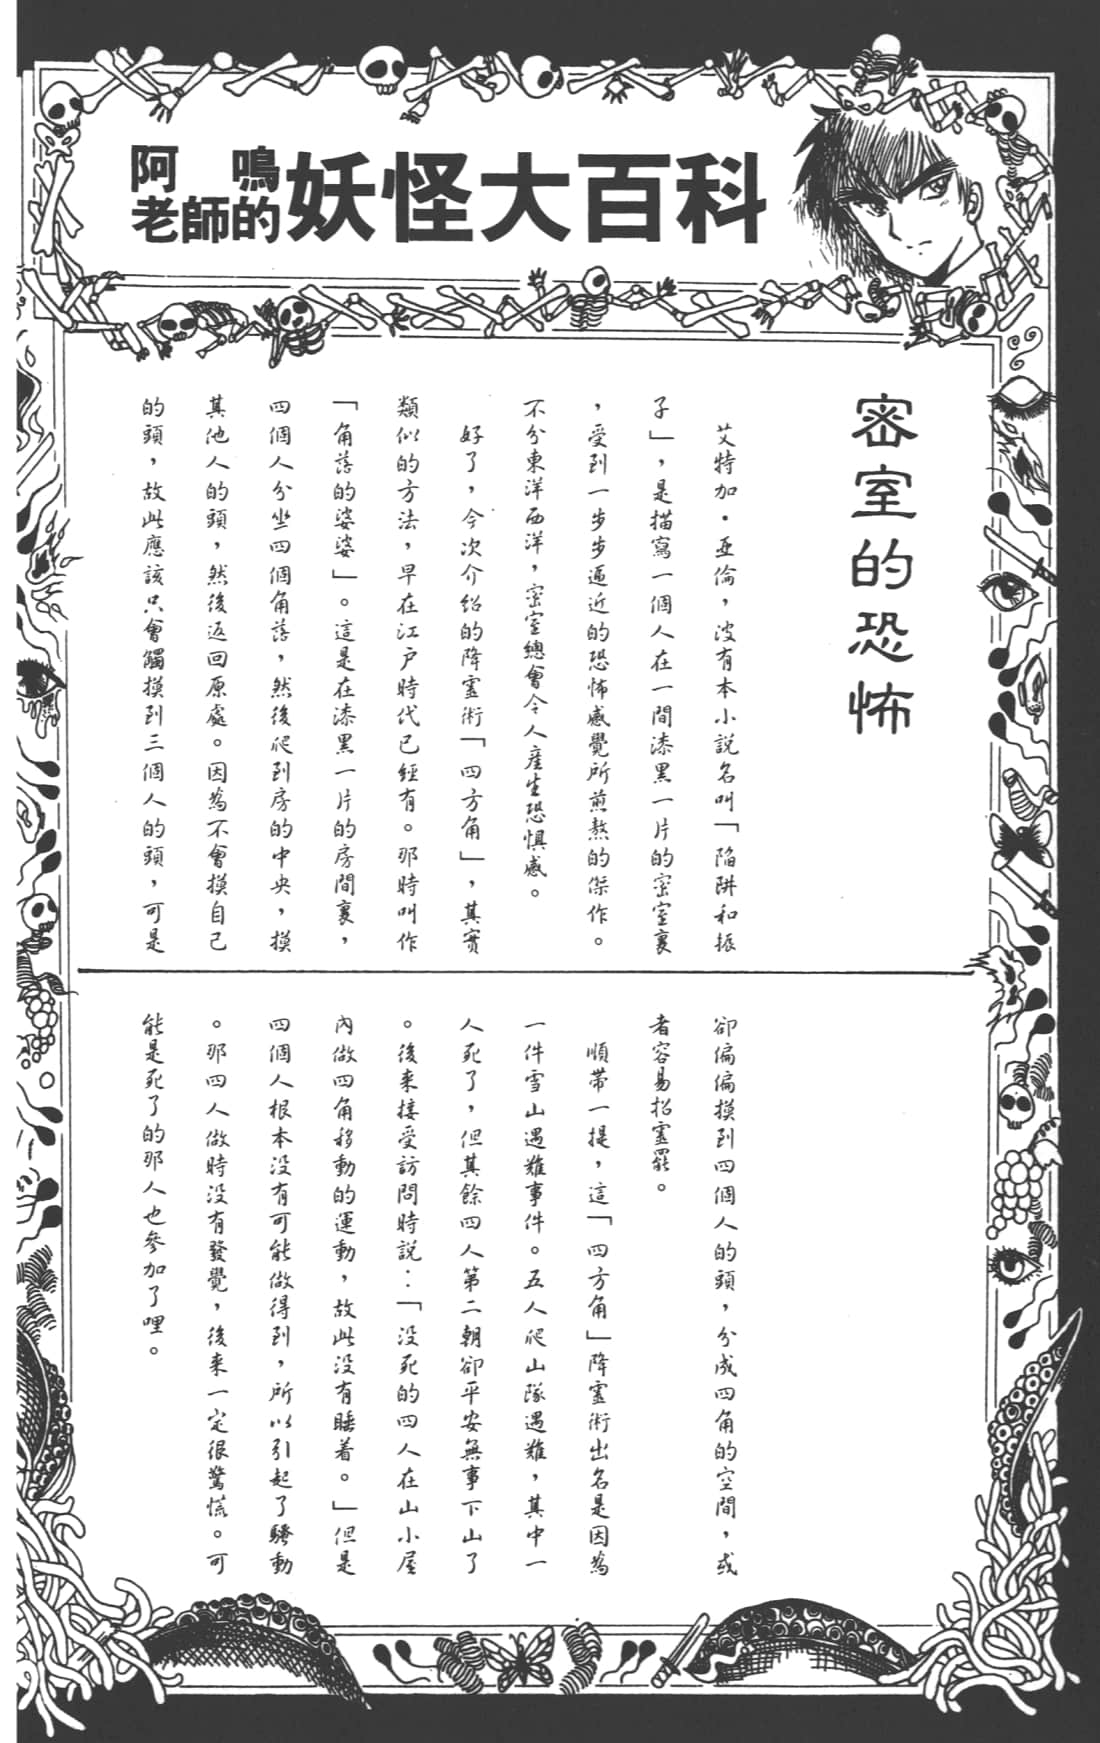 阿鳴老師的妖怪大百科
密室的恐怖
艾特加・亞倫，波有本小說名叫「陷阱和振
子」，是描寫一個人在一間漆黑一片的密室裏
，受到一步步逼近的恐怖感覺所煎熬的傑作。
不分東洋西洋，密室總會令人產生恐惧感。
好了，今次介紹的降靈術「四方角」，其實
類似的方法，早在江戶時代已經有。那時叫作
「角落的婆婆」。這是在漆黑一片的房間裏，
四個人分坐四個角落，然後爬到房的中央，摸
其他人的頭，然後返回原處。因為不會摸自己
的頭，故此應該只會觸摸到三個人的頭，可是
卻偏偏摸到四個人的頭，分成四角的空間，或
者容易招靈罷。
順帶一提，這「四方角」降靈術出名是因為
一件雪山遇難事件。五人爬山隊遇難，其中一
人死了，但其餘四人第二朝卻平安無事下山了
。後來接受訪問時說：「沒死的四人在山小屋
內做四角移動的運動，故此沒有睡着。」但是
四個人根本沒有可能做得到，所以引起了騷動
。那四人做時沒有發覺，後來一定很驚慌。可
能是死了的那人也參加了哩。